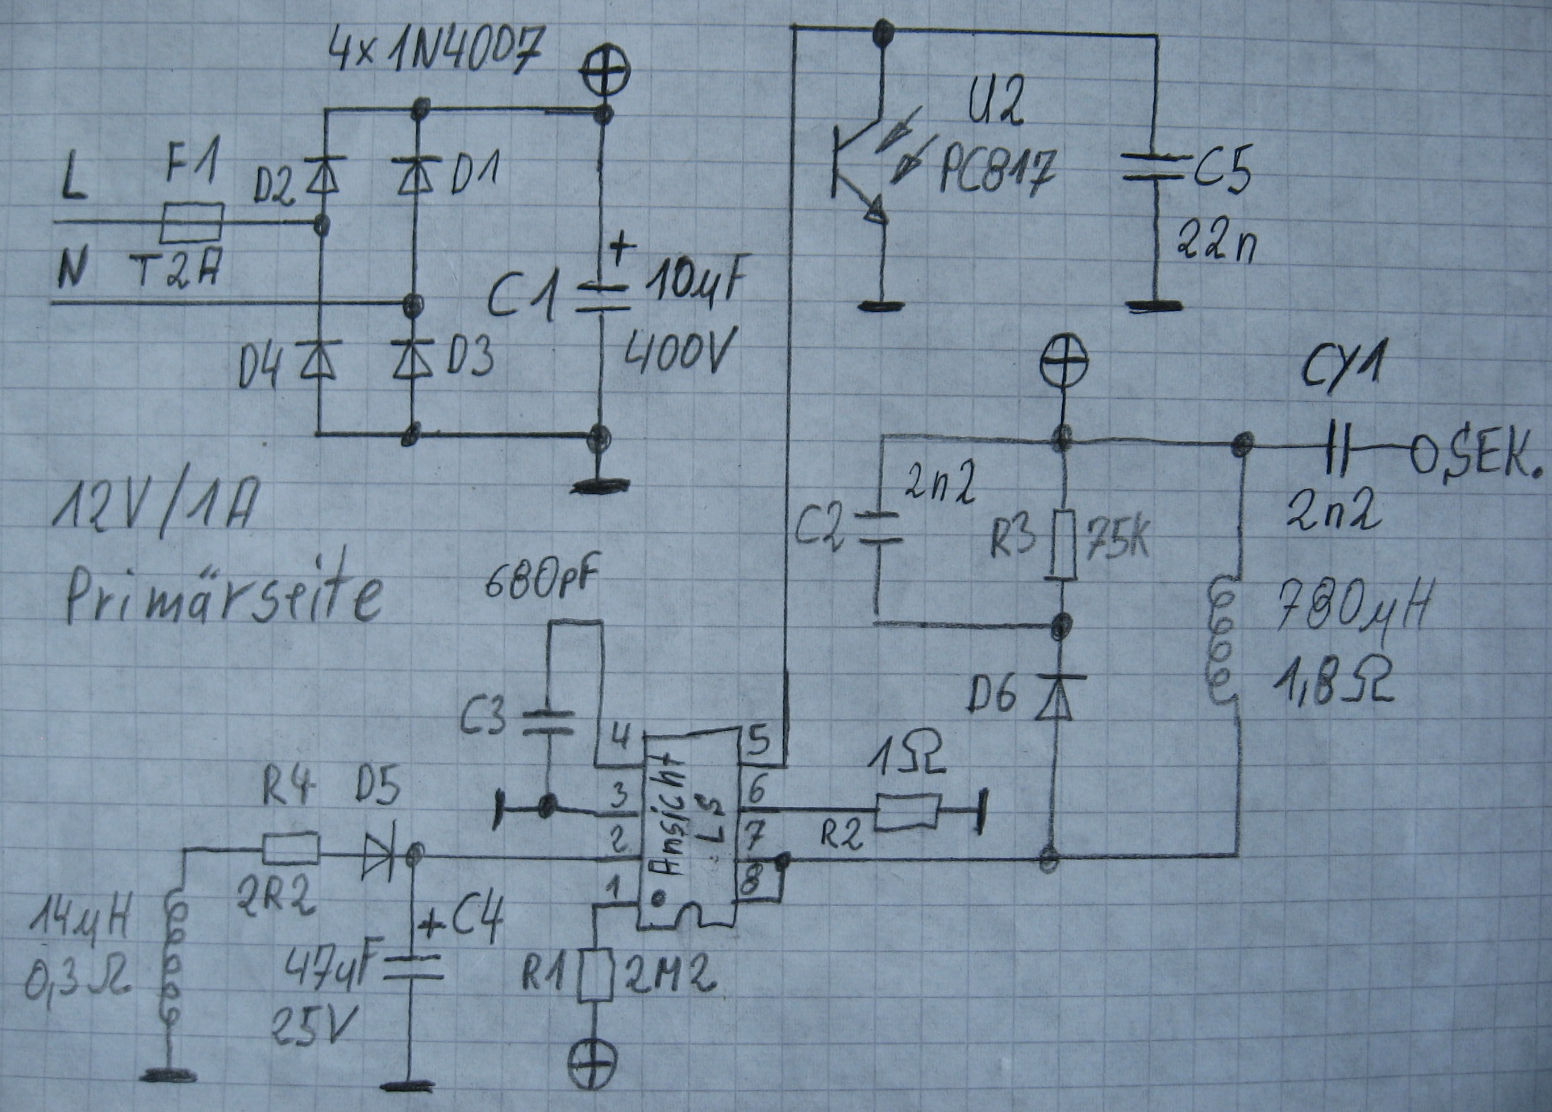 4x1N4007
L
F1
D2
D1
N
T2A
C1
+
10µF
400V
D4
D3
U2
PC817
C5
22n
12V/1A
Primärseite
CY1
2n2
SEK.
C2
2n2
R3
75K
780µH
1,8Ω
D6
680pF
C3
4
3
2
1
5
6
7
8
Ansicht
LS
1Ω
R2
R4
D5
2R2
14µH
0,3Ω
+
C4
47µF
25V
R1
2M2